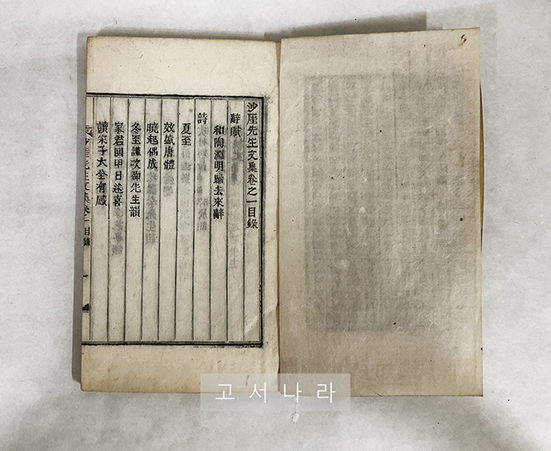 沙厓先生文集卷之一目錄
辭賦
和陶淵明歸去來辭
詩
夏至
效盛唐體
曉起偶成
冬至謹次先生韻
家君回甲日述喜
讀宋子大全有感
沙厓先生文集卷一目錄 一
고서나라